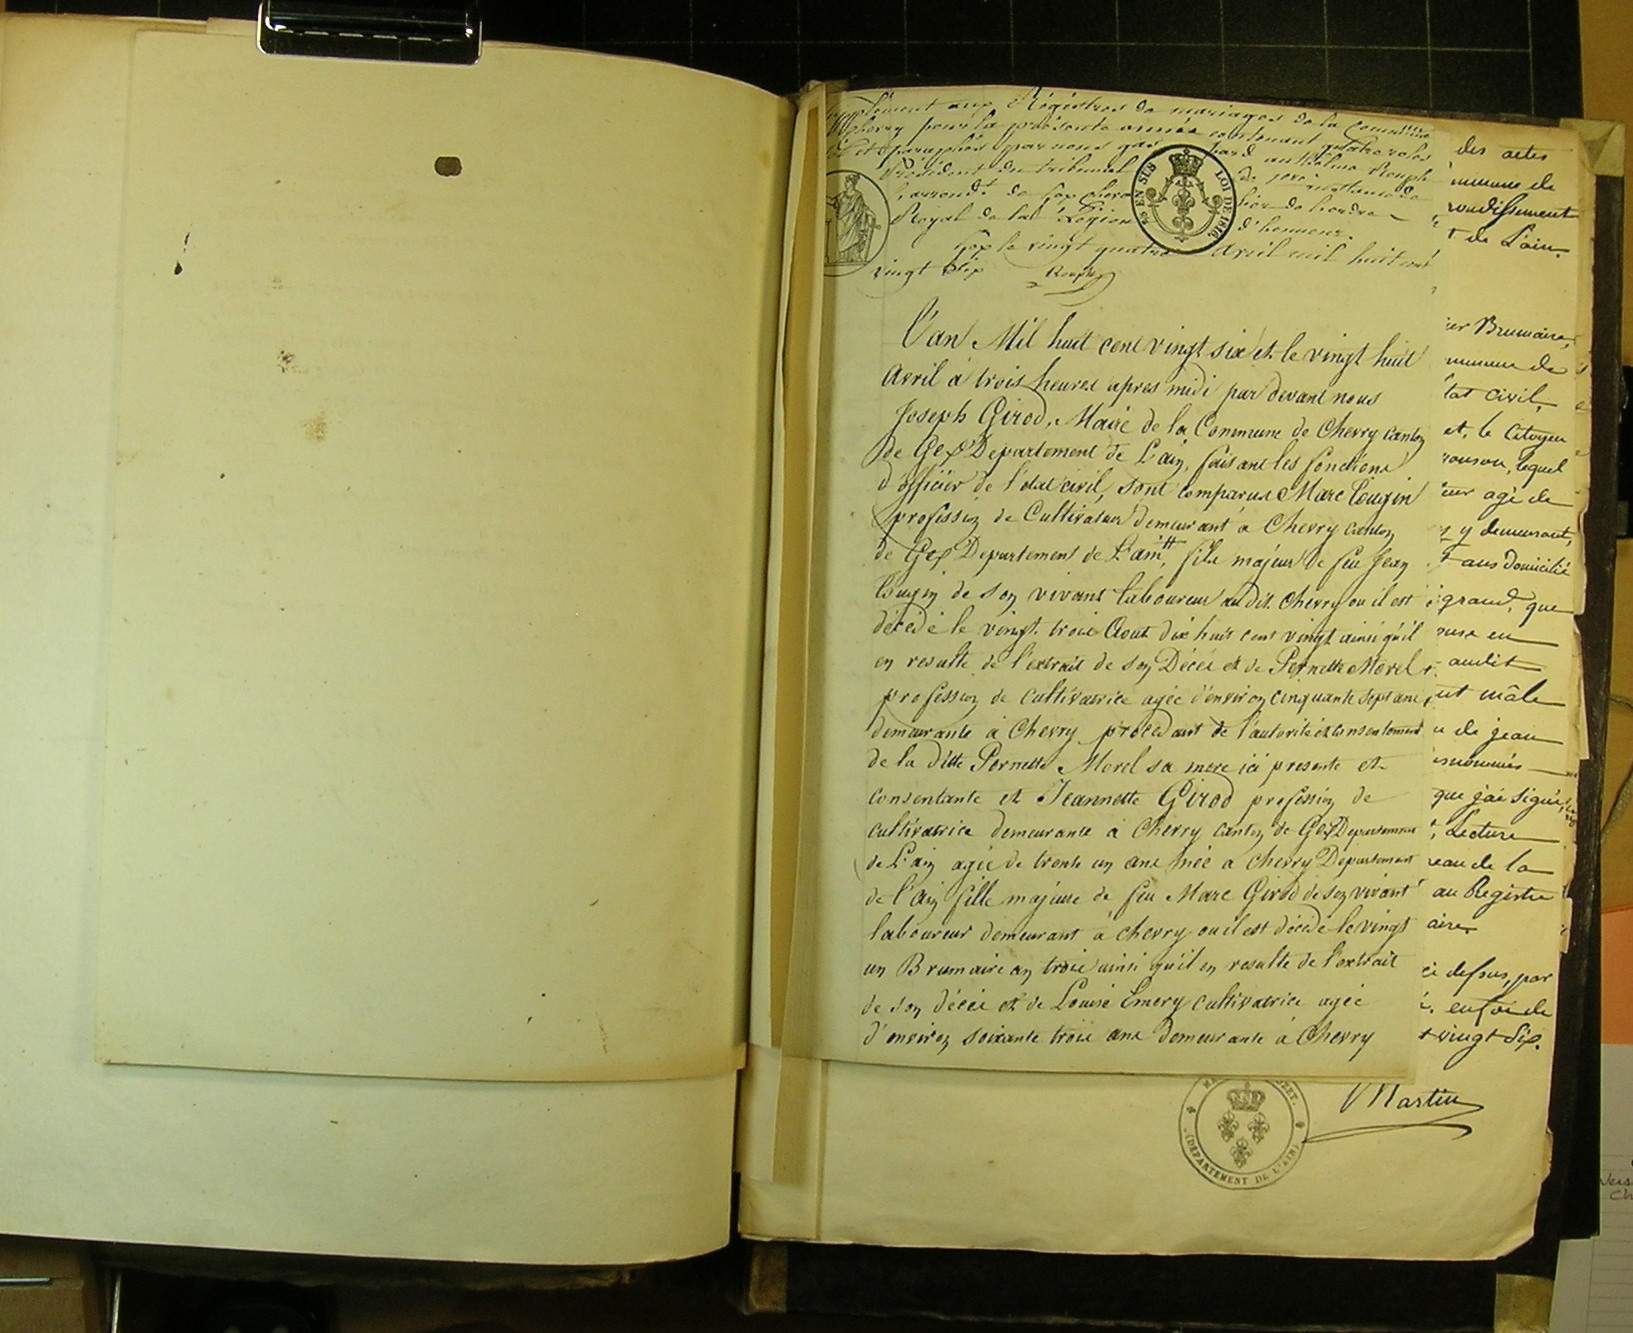 Supplément aux Régistres de mariages de la commune
Chevry pour la présente année contenant quatre roles
et paraphés par nous gas pard anthelme Rouph
Président du tribunal de pere instance de
l'arrondt de Gex cheva lier de l'ordre
Royal de la Légion d'honneur.
Gex le vingt quatre avril mil huit cent
vingt six Rouph
EN SUS LOI DE 1816
L'an Mil huit cent vingt six et le vingt huit
Avril à trois heures apres midi par devant nous
Joseph Girod, Maire de la Commune de Chevry canton
de Gex Departement de L'ain, faisant les fonctions
d'officier de l'etat civil, sont comparus Marc Cougin
profession de Cultivateur demeurant à Chevry canton
de Gex Departement de L'ain, fils majeur de feu Jean
Cougin de son vivant laboureur audit Chevry ou il est
décédé le vingt trois Aout dix huit cent vingt ainsi qu'il
en resulte de l'extrait de son Décès et de Pernette Morel
profession de cultivatrice agée d'environ cinquante sept ans
demeurante à Chevry procedant de l'autorité et consentement
de la ditte Pernette Morel sa mere ici presente et
consentante et Jeannette Girod profession de
cultivatrice demeurante à Chevry canton de Gex Departement
de L'ain agée de trente un ans née à Chevry Departement
de l'Ain fille majeure de feu Marc Girod de son vivant
laboureur demeurant à Chevry ou il est décédé le vingt
un Brumaire an trois ainsi qu'il en resulte de l'extrait
de son décès et de Louise Emery cultivatrice agée
d'environ soixante trois ans demeurante à Chevry
des actes
mmune de
rondissement
t de L'ain.
ier Brumaire,
mmune de
tat civil,
et, le Citoyen
lequel
eur agé de
y demeurant,
ans Domicilié
grand, que
use en
audit
nt mâle
de jean
snommés
que j'ai signé,
Lecture
eau de la
au Registre
aire
ci dessus, par
en foi de
vingt six.
Martin
(DÉPARTEMENT DE L'AIN)